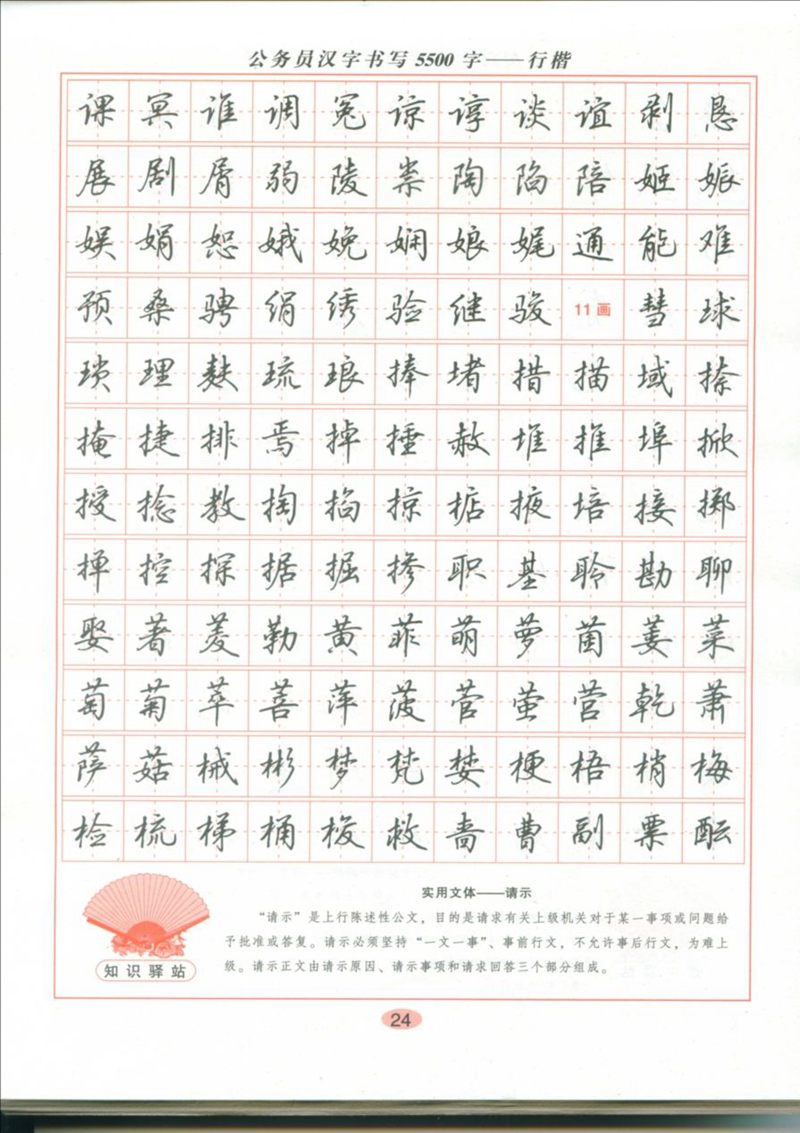 公务员汉字书写5500字——行楷
课冥谁调冤谅谆谈谊剥恳
展剧屑弱陵祟陶陷陪姬娠
娱娟恕娥娩娴娘娓通能难
预桑骋绢绣验继骏11画彗球
琐理麸琉琅捧堵措描域捺
掩捷排焉掉捶赦堆推埠掀
授捻教掏掐掠掂掖培接掷
掸控探据掘掺职基聆勘聊
娶著菱勒黄菲萌萝菌萎菜
萄菊萃菩萍菠菅萤营乾萧
萨菇械彬梦梵婪梗梧梢梅
检梳梯桶梭救啬曹副票酝
实用文体——请示
“请示”是上行陈述性公文，目的是请求有关上级机关对于某一事项或问题给
予批准或答复。请示必须坚持“一文一事”、事前行文，不允许事后行文，为难上
级。请示正文由请示原因、请示事项和请求回答三个部分组成。
知识驿站
24